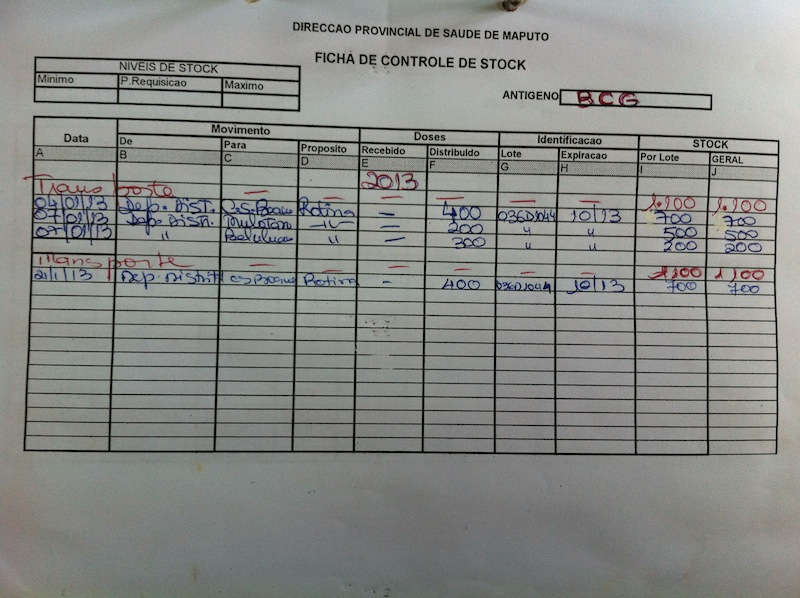 DIRECCAO PROVINCIAL DE SAUDE DE MAPUTO
FICHA DE CONTROLE DE STOCK
NIVEIS DE STOCK
Minimo P.Requisicao Maximo
ANTIGENO BCG
Data Movimento Doses Identificacao STOCK
De Para Proposito Recebido Distribuido Lote Expiracao Por Lote GERAL
A B C D E F G H I J
2013
Transporte — — — — — — 1.100 1.100
04/01/13 Dep. Dist. Rotina — 400 036D1044 10/13 700 700
07/01/13 Dep. Distr. — 200 " " 500 500
07/01/13 " " — 300 " " 200 200
Transporte — — — — — — 1100 1100
21/1/13 Dep. Distrit Rotina - 400 036D1044 10/13 700 700